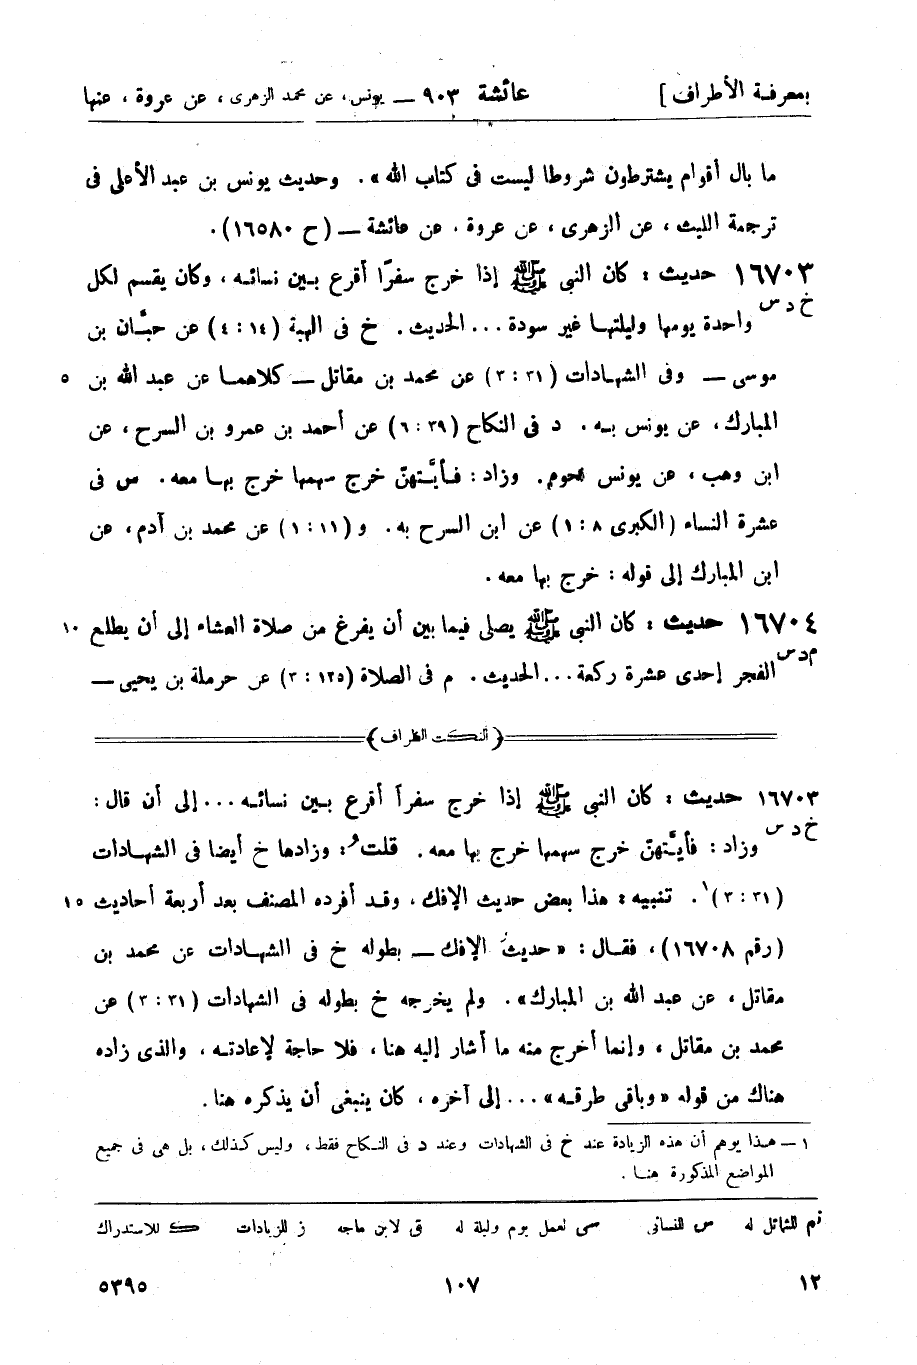 بمعرفة الأطراف ] عائشة ٩٠٣ — يونس، عن محمد الزهرى، عن عروة، عنها
ما بال أقوام يشترطون شروطا ليست فى كتاب الله». وحديث يونس بن عبد الأعلى فى
ترجمة الليث، عن الزهرى، عن عروة، عن عائشة — (ح ١٦٥٨٠).
١٦٧٠٣ حديث: كان النبى ﷺ إذا خرج سفرًا أقرع بـين نسائـه، وكان يقسم لكل
خ د س واحدة يومها وليلتهـا غير سودة... الحديث. خ فى الهبة (١٤ : ٤) عن حبَّـان بن
موسى — وفى الشهـادات (٣١ : ٣) عن محمد بن مقاتل — كلاهمـا عن عبد الله بن ٥
المبارك، عن يونس بـه. د فى النكاح (٣٩ : ٦) عن أحمد بن عمرو بن السرح، عن
ابن وهب، عن يونس نحوه. وزاد: فـأيَّـتهنّ خرج سهمها خرج بهـا معه. س فى
عشرة النساء (الكبرى ٨ : ١) عن ابن السرح به. و(١١ : ١) عن محمد بن آدم، عن
ابن المبارك إلى قوله: خرج بها معه.
١٦٧٠٤ حديث: كان النبى ﷺ يصلى فيما بين أن يفرغ من صلاة العشاء إلى أن يطلع ١٠
م د س الفجر إحدى عشرة ركعة... الحديث. م فى الصلاة (١٢٥ : ٣) عن حرملة بن يحيى —
﴿ النكت الظراف ﴾
١٦٧٠٣ حديث: كان النبى ﷺ إذا خرج سفرًا أقرع بـين نسائـه... إلى أن قال:
خ د س وزاد: فأيَّـتهنّ خرج سهمها خرج بها معه. قلتُ: وزادها خ أيضا فى الشهـادات
(٣١ : ٣)١. تنبيه: هذا بعض حديث الإفك، وقـد أفرده المصنف بعد أربعة أحاديث ١٥
(رقم ١٦٧٠٨)، فقـال: «حديثُ الإفك — بطوله خ فى الشهـادات عن محمد بن
مقاتل، عن عبد الله بن المبارك». ولم يخرجه خ بطوله فى الشهادات (٣١ : ٣) عن
محمد بن مقاتل، وإنما أخرج منه ما أشار إليه هنا، فلا حاجة لإعادتـه، والذى زاده
هناك من قوله «وباقى طرقـه»... إلى آخره، كان ينبغى أن يذكره هنا.
١ — هـذا يوهم أن هذه الزيادة عند خ فى الشهادات وعند د فى النـكاح فقط، وليس كـذلك، بل هى فى جميع
المواضع المذكورة هنـا.
تم للشمائل له س للنسائى سى لعمل يوم وليلة له ق لابن ماجه ز للزيادات ك للاستدراك
١٢ ١٠٧ ٥٣٩٥